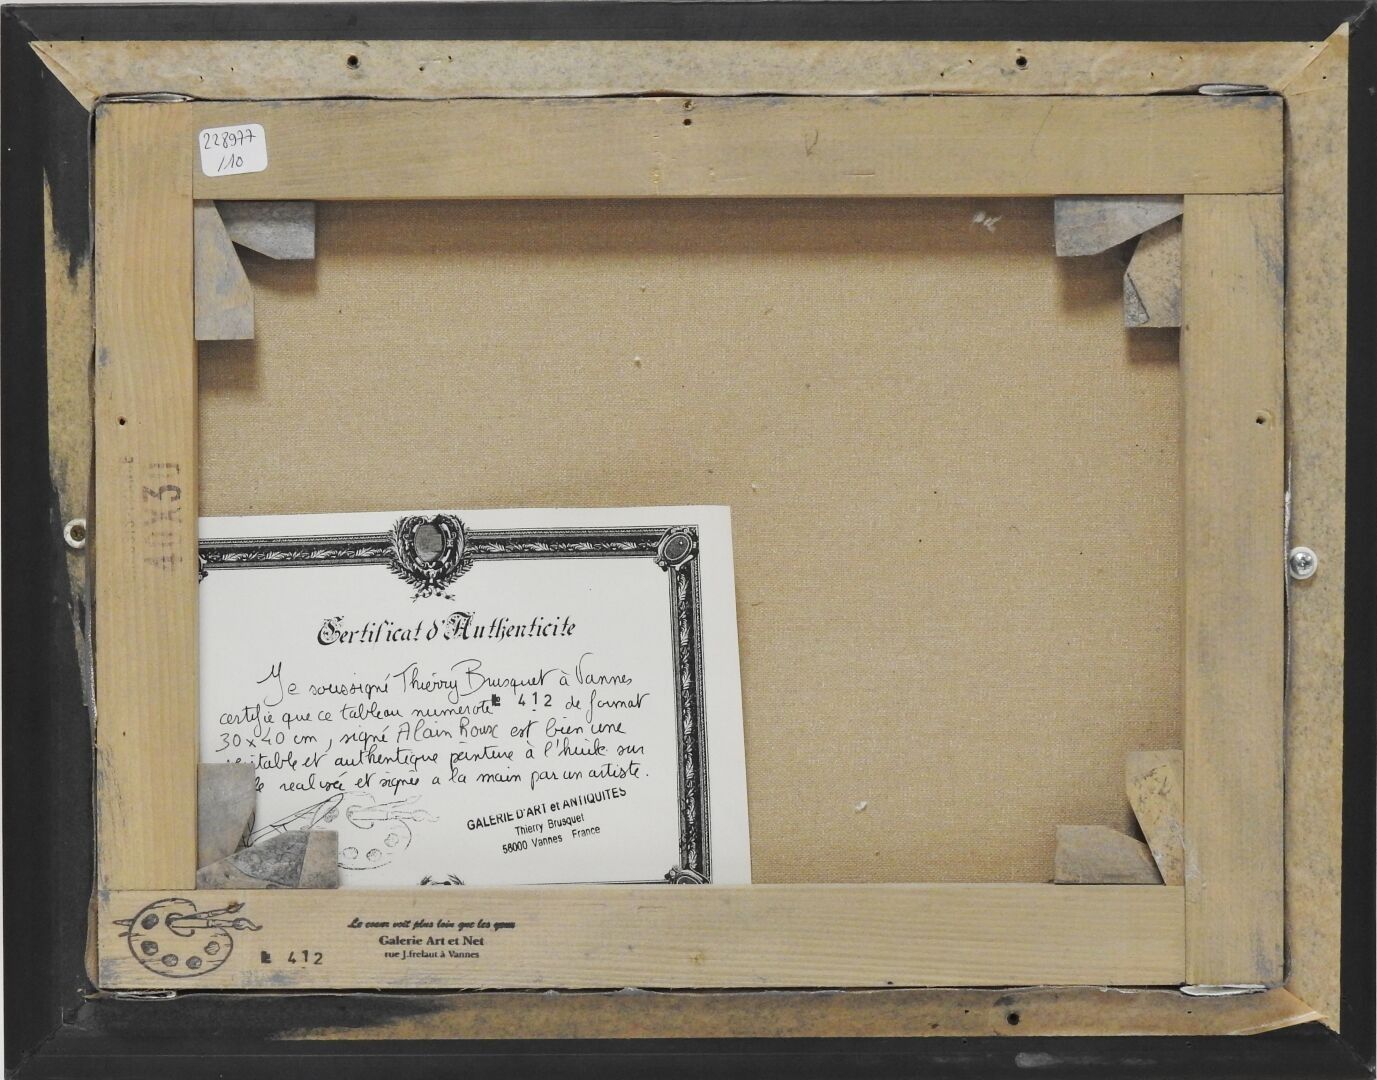 228977
/10
40X3
Certificat d'Authenticite
Je soussigné Thierry Brusquet à Vannes
certifie que ce tableau numeroté 412 de format
30 x 40 cm, signé Alain Roux est bien une
veritable et authentique peinture à l'huile sur
realisée et signée a la main par un artiste.
GALERIE D'ART et ANTIQUITES
Thierry Brusquet
56000 Vannes France
Le coeur voit plus loin que les yeux
Galerie Art et Net
rue J.frelaut à Vannes
412